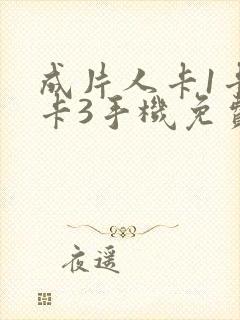 成片人卡1卡
卡3手機免費
夜遥